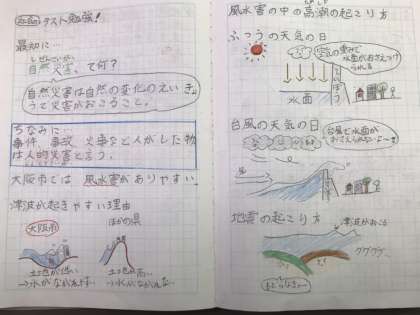 テスト勉強!
最初に…
しぜんさいがい
自然災害、て何?
自然災害は自然の変化のえいきょ
うで災害がおこること。
ちなみに…
事件 事故 火事など人がした物
は人的災害と言う。
大阪市では 風水害がありやすい。
津波が起きやすい理由
大阪市
ほかの県
土地が低い
土地が高い
風水害の中の高潮の起こり方
ふつうの天気の日
空気の重みで
水面がおさえつけ
られる
水面
台風の天気の日
台風で水面が
おさえられないよ〜
地震の起こり方
津波がおこる